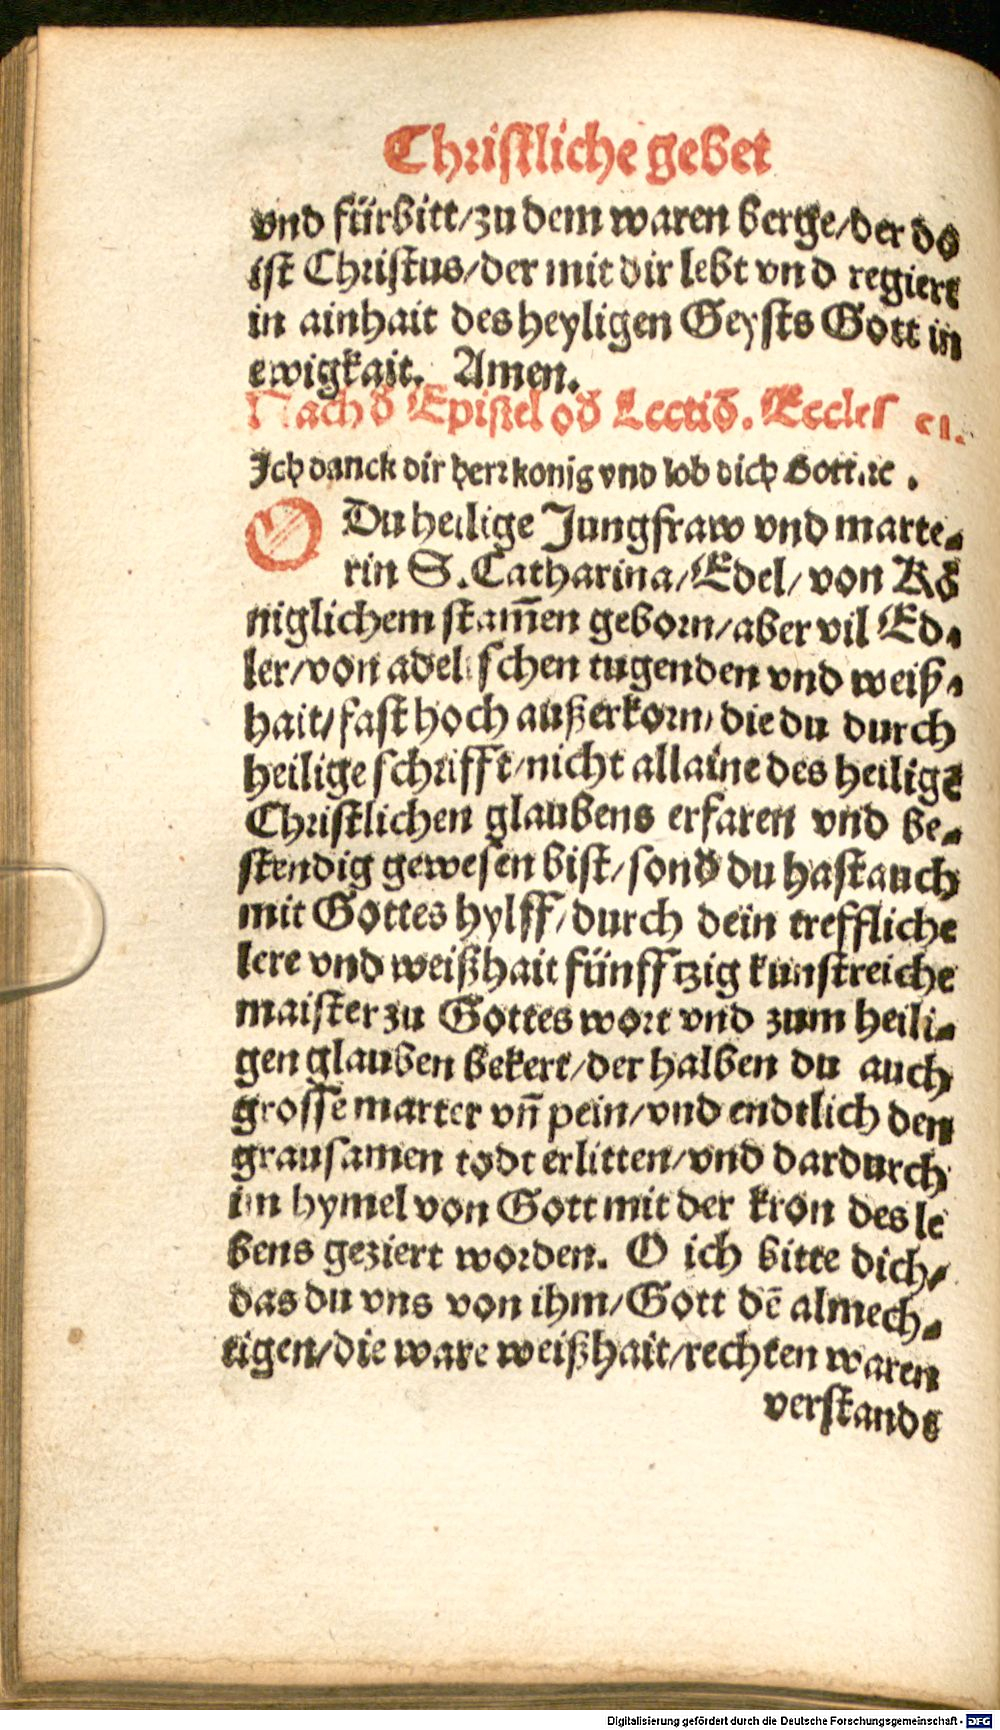 Christliche gebet
vnd fürbitt/zu dem waren berge/der do
ist Christus/der mit dir lebt vnd regiert
in ainhait des heyligen Geysts Gott in
ewigkait. Amen.
Nach d̄ Epistel od̄ Lectiō. Eccles
Ich danck dir herr konig vnd lob dich Gott.ꝛc.
O Du heilige Jungfraw vnd marte-
rin S. Catharina/Edel/von Kö
niglichem stam̄en geborn/aber vil Ed-
ler/von adelischen tugenden vnd weiß-
hait/fast hoch außerkorn/die du durch
heilige schrifft/nicht allaine des heiligē
Christlichen glaubens erfaren vnd be-
stendig gewesen bist/sond̄ du hast auch
mit Gottes hylff/durch dein treffliche
lere vnd weißhait fünfftzig kunstreiche
maister zu Gottes wort vnd zum heili-
gen glauben bekert/der halben du auch
grosse marter vn̄ pein/vnd endtlich den
grausamen todt erlitten/vnd dardurch
im hymel von Gott mit der kron des le
bens geziert worden. O ich bitte dich/
das du vns von ihm/Gott dē almech-
tigen/die ware weißhait/rechten waren
verstands
Digitalisierung gefördert durch die Deutsche Forschungsgemeinschaft - DFG